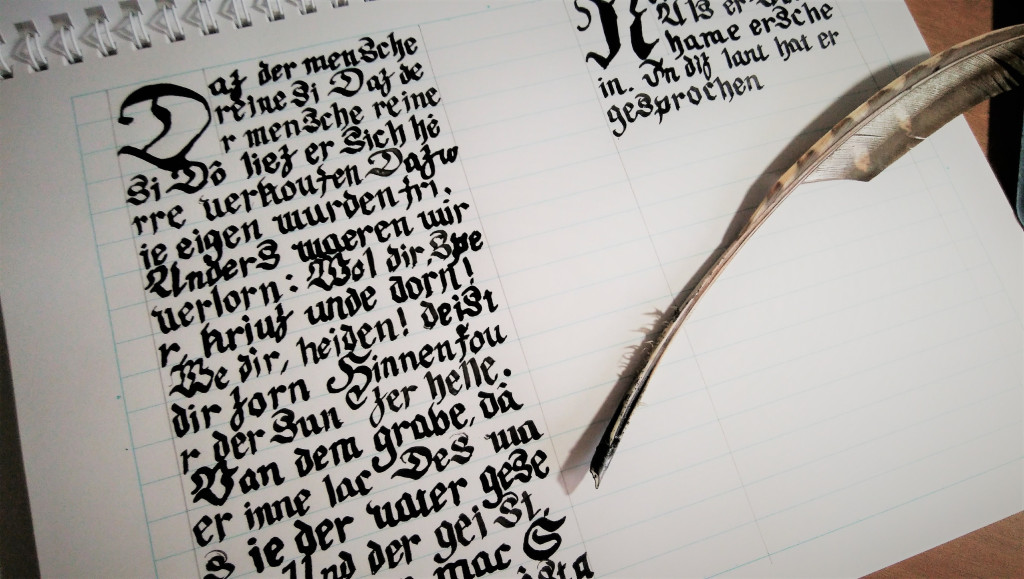 Daz der mensche
reine si Daz de
r mensche reine
si Dô liez er sich hê
rre verkoufen Dazw
ie eigen wurden fri.
Anders waeren wir
verlorn: Wol dir, Spe
r, kriuz unde dorn!
We dir, heiden! deist
dir zorn Hinnen fou
r der Sun zer helle.
Van dem grabe, dâ
er inne lac Des wa
s ie der vater gese
Und der geist.
mac S
ista
Als er
hame ersche
in. In diz lant hat er
gesprochen